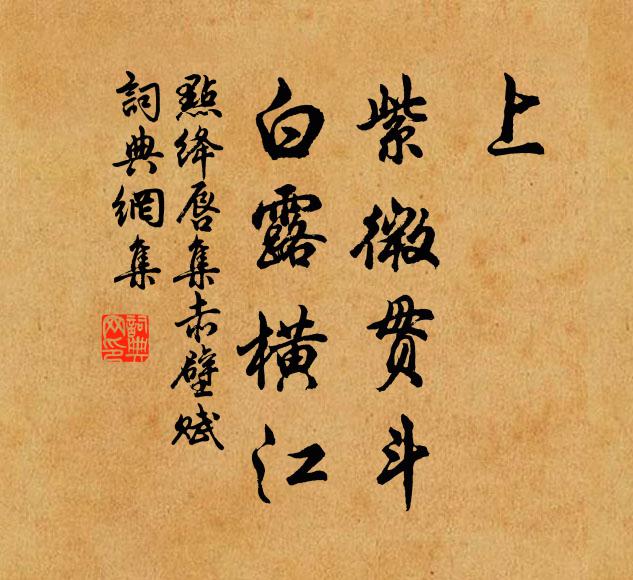 上
紫微贯斗
白露橫江
點絳唇集赤壁賦
詞典網集
詞典網印